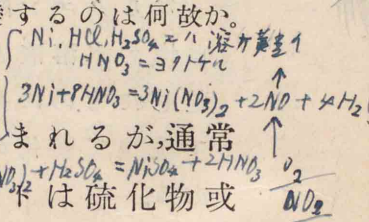 するのは何故か。
Ni, HCl, H₂SO₄ = ハ 溶
HNO₃ = ヨク
3Ni+8HNO₃=3Ni(NO₃)₂+2NO+4H₂
まれるが,通常
NO₃)₂+H₂SO₄=NiSO₄+2HNO₃
O₂
は硫化物或
NO₂